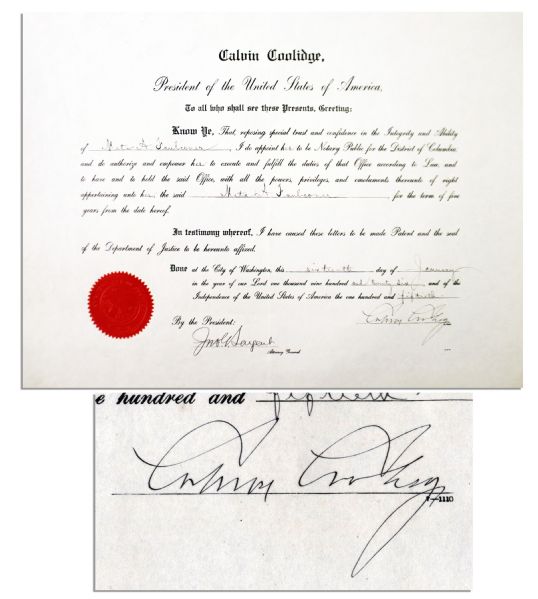 Calvin Coolidge,
President of the United States of America,
To all who shall see these Presents, Greeting:
Know Ye, That, reposing special trust and confidence in the Integrity and Ability
of , I do appoint her to be Notary Public for the District of Columbia,
and do authorize and empower her to execute and fulfill the duties of that Office according to Law, and
to have and to hold the said Office, with all the powers, privileges, and emoluments thereunto of right
appertaining unto her, the said for the term of five
years from the date hereof.
In testimony whereof, I have caused these letters to be made Patent and the seal
of the Department of Justice to be hereunto affixed.
Done at the City of Washington, this sixteenth day of January
in the year of our Lord one thousand nine hundred and twenty six, and of the
Independence of the United States of America the one hundred and fiftieth
Calvin Coolidge
By the President:
Jno G Sargent
Attorney General
e hundred and fiftieth
Calvin Coolidge
7—1110